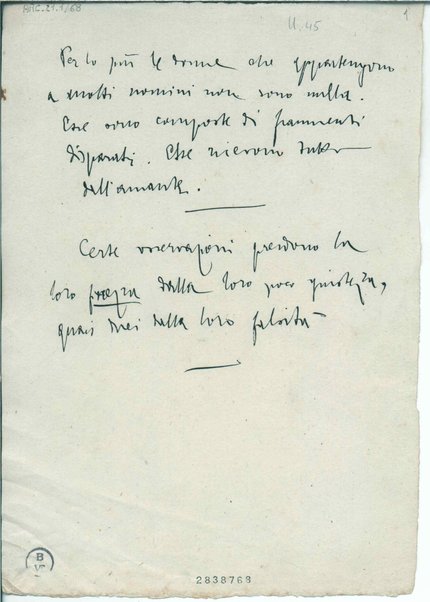 ARC.21.1/68
U. 45
1
Per lo più le donne che appartengono
a molti uomini non sono nulla.
Esse sono composte di frammenti
disparati. Esse ricevono tutto
dall'amante.
Certe osservazioni prendono la
loro forza dalla loro poca giustezza,
quasi direi dalla loro falsità
B
2838768